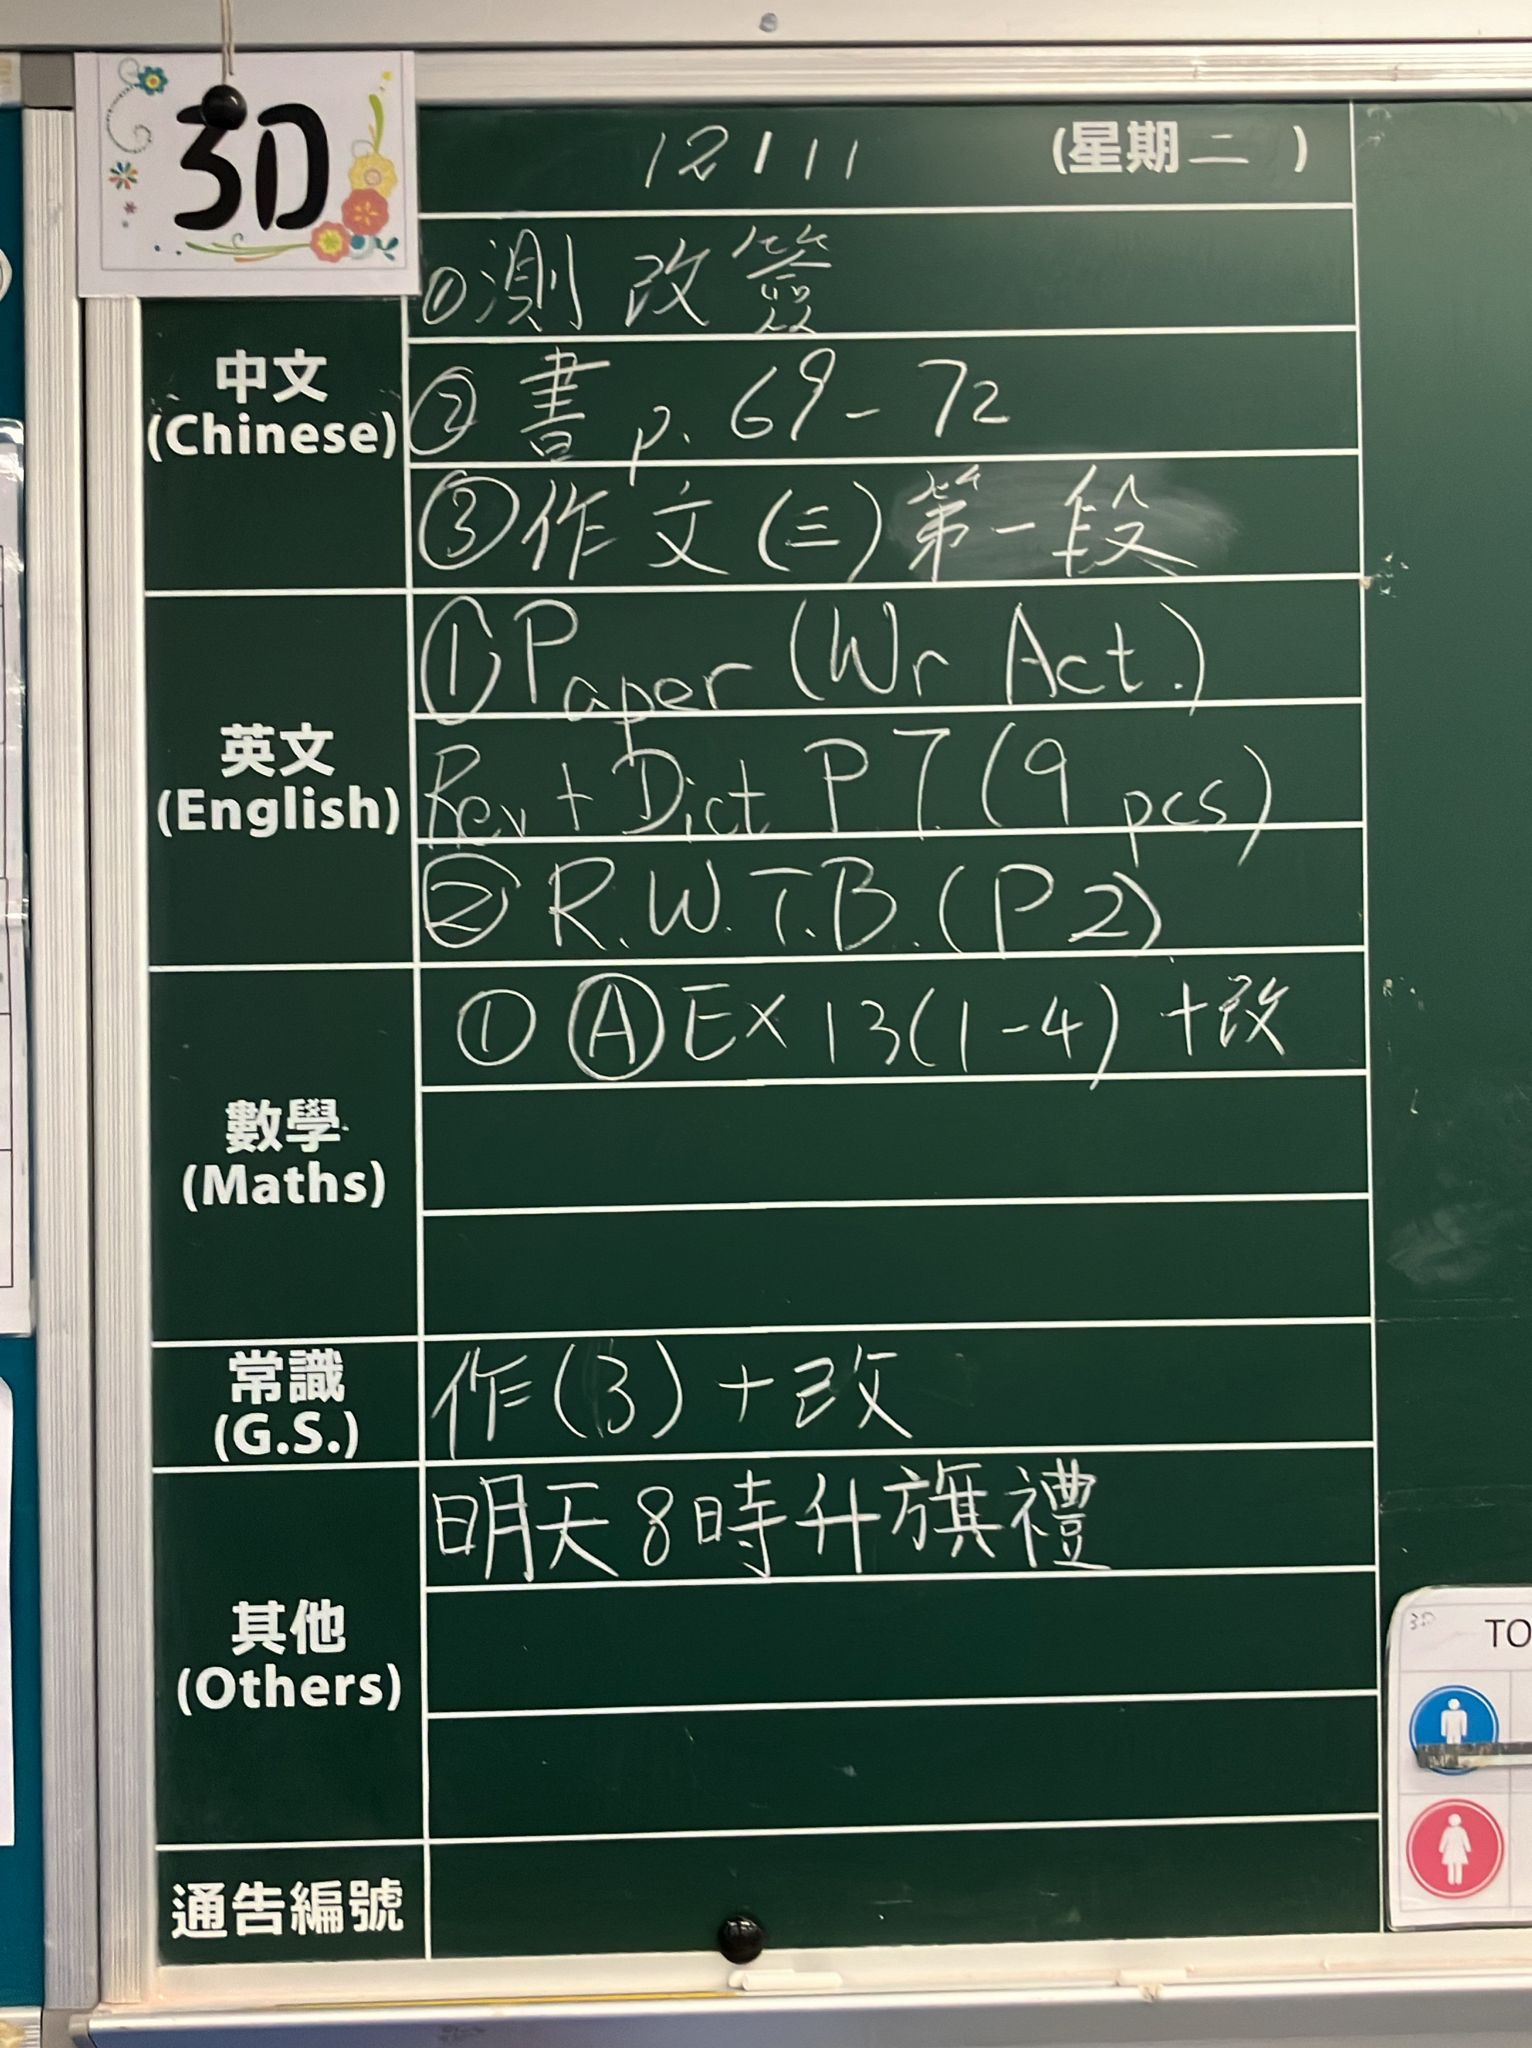 3D
12 / 11 (星期二)
中文
(Chinese)
① 測改簽
② 書 p. 69 - 72
③ 作文(三)第一段
英文
(English)
① Paper (Wr Act.)
Rev + Dict P.7. (9 pcs)
② R.W.T.B. (P 2)
數學
(Maths)
① Ⓐ Ex 13(1-4) + 改
常識
(G.S.)
作(3) + 改
其他
(Others)
明天8時升旗禮
通告編號
3D
TO